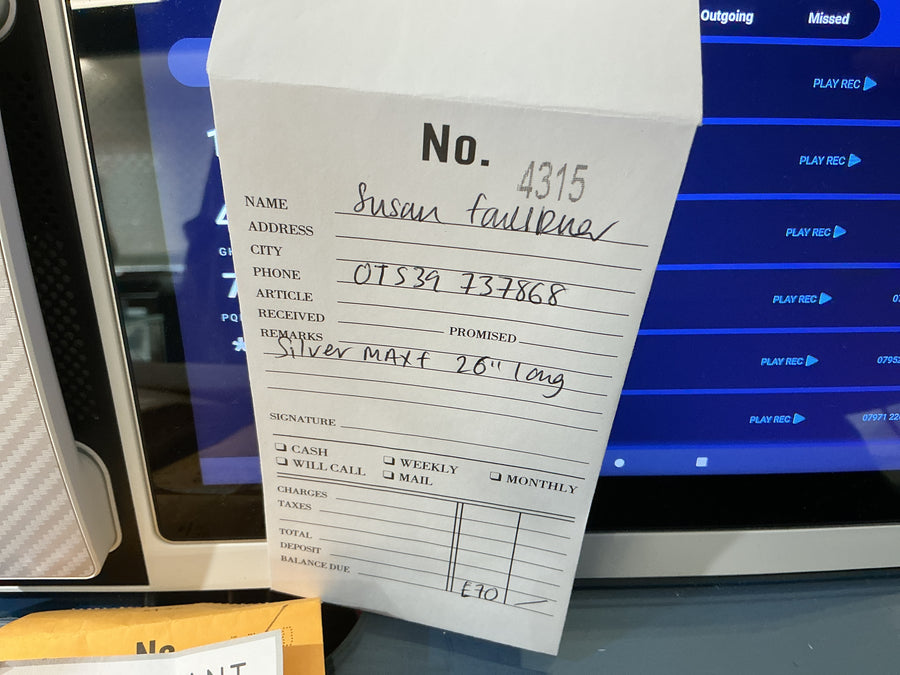 Outgoing Missed
PLAY REC
PLAY REC
PLAY REC
PLAY REC
PLAY REC
PLAY REC
No. 4315
NAME Susan Faulkner
ADDRESS
CITY
PHONE 07539 737868
ARTICLE
RECEIVED PROMISED
REMARKS
Silver MAXF 26" long
SIGNATURE
CASH WEEKLY MONTHLY
WILL CALL MAIL
CHARGES
TAXES
TOTAL
DEPOSIT
BALANCE DUE £70 —
No